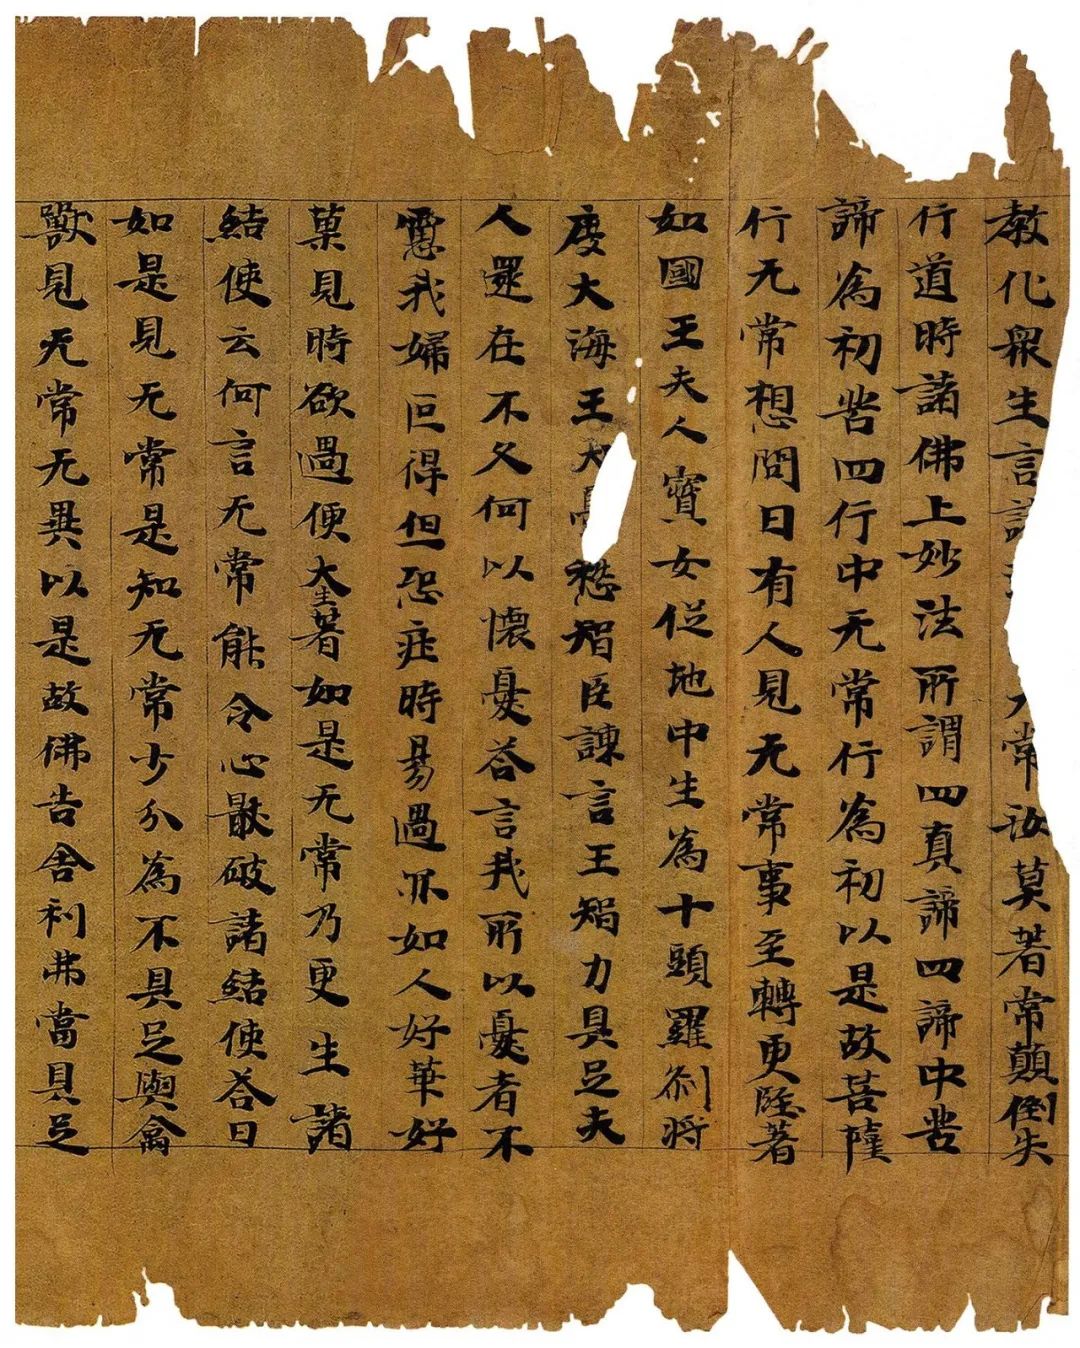 教化眾生言常汝莫著常顛倒失
行道時諸佛上妙法所謂四真諦四諦中苦
諦為初苦四行中无常行為初以是故菩薩
行无常想問曰有人見无常事至轉更堅著
如國王夫人寶女從地中生為十頭羅剎將
度大海王大憂愁智臣諫言王智力具足夫
人還在不久何以懷憂荅言我所以憂者不
慮我婦叵得但恐壯時易過亦如人好華好
菓見時欲過便大生著如是无常乃更生諸
結使云何言无常能令心猒破諸結使荅曰
如是見无常是知无常少分為不具足與禽
獸見无常无異以是故佛告舍利弗當具足